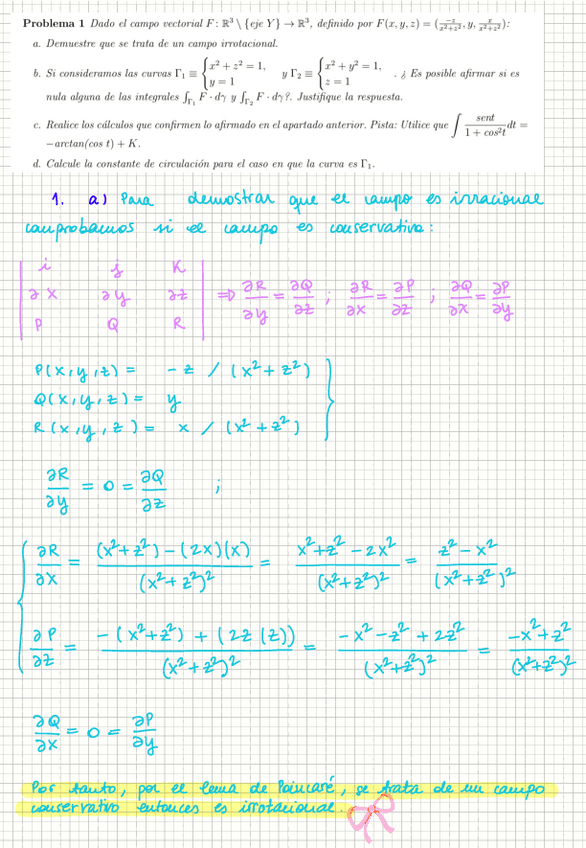 Problema 1 Dado el campo vectorial F : ℝ³ \ {eje Y} → ℝ³, definido por F(x, y, z) = (-z/(x²+z²), y, x/(x²+z²)):
a. Demuestre que se trata de un campo irrotacional.
b. Si consideramos las curvas Γ₁ ≡ { x² + z² = 1, y = 1 y Γ₂ ≡ { x² + y² = 1, z = 1 . ¿ Es posible afirmar si es
nula alguna de las integrales ∫_Γ₁ F · dγ y ∫_Γ₂ F · dγ?. Justifique la respuesta.
c. Realice los cálculos que confirmen lo afirmado en el apartado anterior. Pista: Utilice que ∫ sent/(1 + cos²t) dt =
−arctan(cos t) + K.
d. Calcule la constante de circulación para el caso en que la curva es Γ₁.
1. a) Para demostrar que el campo es irracional
comprobamos si el campo es conservativo:
| i j K |
| ∂x ∂y ∂z | ⇒ ∂R/∂y = ∂Q/∂z ; ∂R/∂x = ∂P/∂z ; ∂Q/∂x = ∂P/∂y
| P Q R |
P(x,y,z) = -z / (x²+z²)
Q(x,y,z) = y
R(x,y,z) = x / (x²+z²)
∂R/∂y = 0 = ∂Q/∂z ;
∂R/∂x = ((x²+z²)-(2x)(x))/(x²+z²)² = (x²+z²-2x²)/(x²+z²)² = (z²-x²)/(x²+z²)²
∂P/∂z = (-(x²+z²)+(2z(z)))/(x²+z²)² = (-x²-z²+2z²)/(x²+z²)² = (-x²+z²)/(x²+z²)²
∂Q/∂x = 0 = ∂P/∂y
Por tanto, por el lema de Poincaré, se trata de un campo
conservativo entonces es irrotacional.